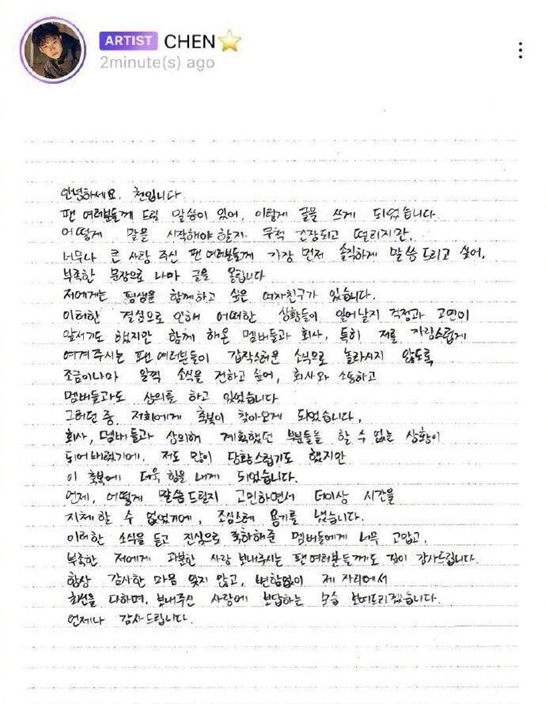 ARTIST CHEN⭐
2minute(s) ago
안녕하세요. 첸입니다.
팬 여러분들께 드릴 말씀이 있어, 이렇게 글을 쓰게 되었습니다.
어떻게 말을 시작해야 할지 무척 긴장되고 떨리지만,
너무나 큰 사랑 주신 팬 여러분들께 가장 먼저 솔직하게 말씀 드리고 싶어,
부족한 문장으로 나마 글을 올립니다
저에게는 평생을 함께하고 싶은 여자친구가 있습니다.
이러한 결심으로 인해 어떠한 상황들이 일어날지 걱정과 고민이
앞서기도 했지만 함께 해온 멤버들과 회사, 특히 저를 자랑스럽게
여겨주시는 팬 여러분들이 갑작스러운 소식으로 놀라시지 않도록
조금이나마 일찍 소식을 전하고 싶어, 회사와 소통하고
멤버들과도 상의를 하고 있었습니다
그러던 중, 저희에게 축복이 찾아오게 되었습니다.
회사, 멤버들과 상의해 계획했던 부분들을 할 수 없는 상황이
되어버렸기에, 저도 많이 당황스럽기도 했지만
이 축복에 더욱 힘을 내게 되었습니다.
언제, 어떻게 말씀 드릴지 고민하면서 더이상 시간을
지체할 수 없었기에, 조심스레 용기를 냈습니다.
이러한 소식을 듣고 진심으로 축하해준 멤버들에게 너무 고맙고,
부족한 저에게 과분한 사랑 보내주시는 팬 여러분들께도 깊이 감사드립니다.
항상 감사한 마음 잊지 않고, 변함없이 제 자리에서
최선을 다하며, 보내주신 사랑에 보답하는 모습 보여드리겠습니다.
언제나 감사드립니다.